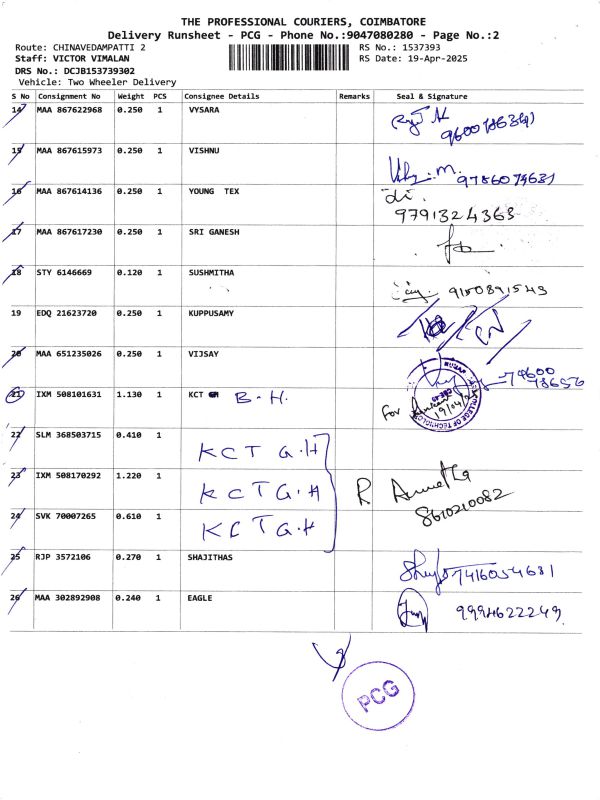 THE PROFESSIONAL COURIERS, COIMBATORE
Delivery Runsheet - PCG - Phone No.:9047080280 - Page No.:2
Route: CHINAVEDAMPATTI 2 RS No.: 1537393
Staff: VICTOR VIMALAN RS Date: 19-Apr-2025
DRS No.: DCJB153739302
Vehicle: Two Wheeler Delivery
S No Consignment No Weight PCS Consignee Details Remarks Seal & Signature
14 MAA 867622968 0.250 1 VYSARA
15 MAA 867615973 0.250 1 VISHNU
9786074631
16 MAA 867614136 0.250 1 YOUNG TEX
9791324363
17 MAA 867617230 0.250 1 SRI GANESH
18 STY 6146669 0.120 1 SUSHMITHA
9150891543
19 EDQ 21623720 0.250 1 KUPPUSAMY
20 MAA 651235026 0.250 1 VIJSAY
21 IXM 508101631 1.130 1 KCT B.H.
For
19/04/25
22 SLM 368503715 0.410 1 KCT G.H
23 IXM 508170292 1.220 1 KCT G.H
R
8610210082
24 SVK 70007265 0.610 1 KCT G.H
25 RJP 3572106 0.270 1 SHAJITHAS
7416054631
26 MAA 302892908 0.240 1 EAGLE
9994622249
PCG